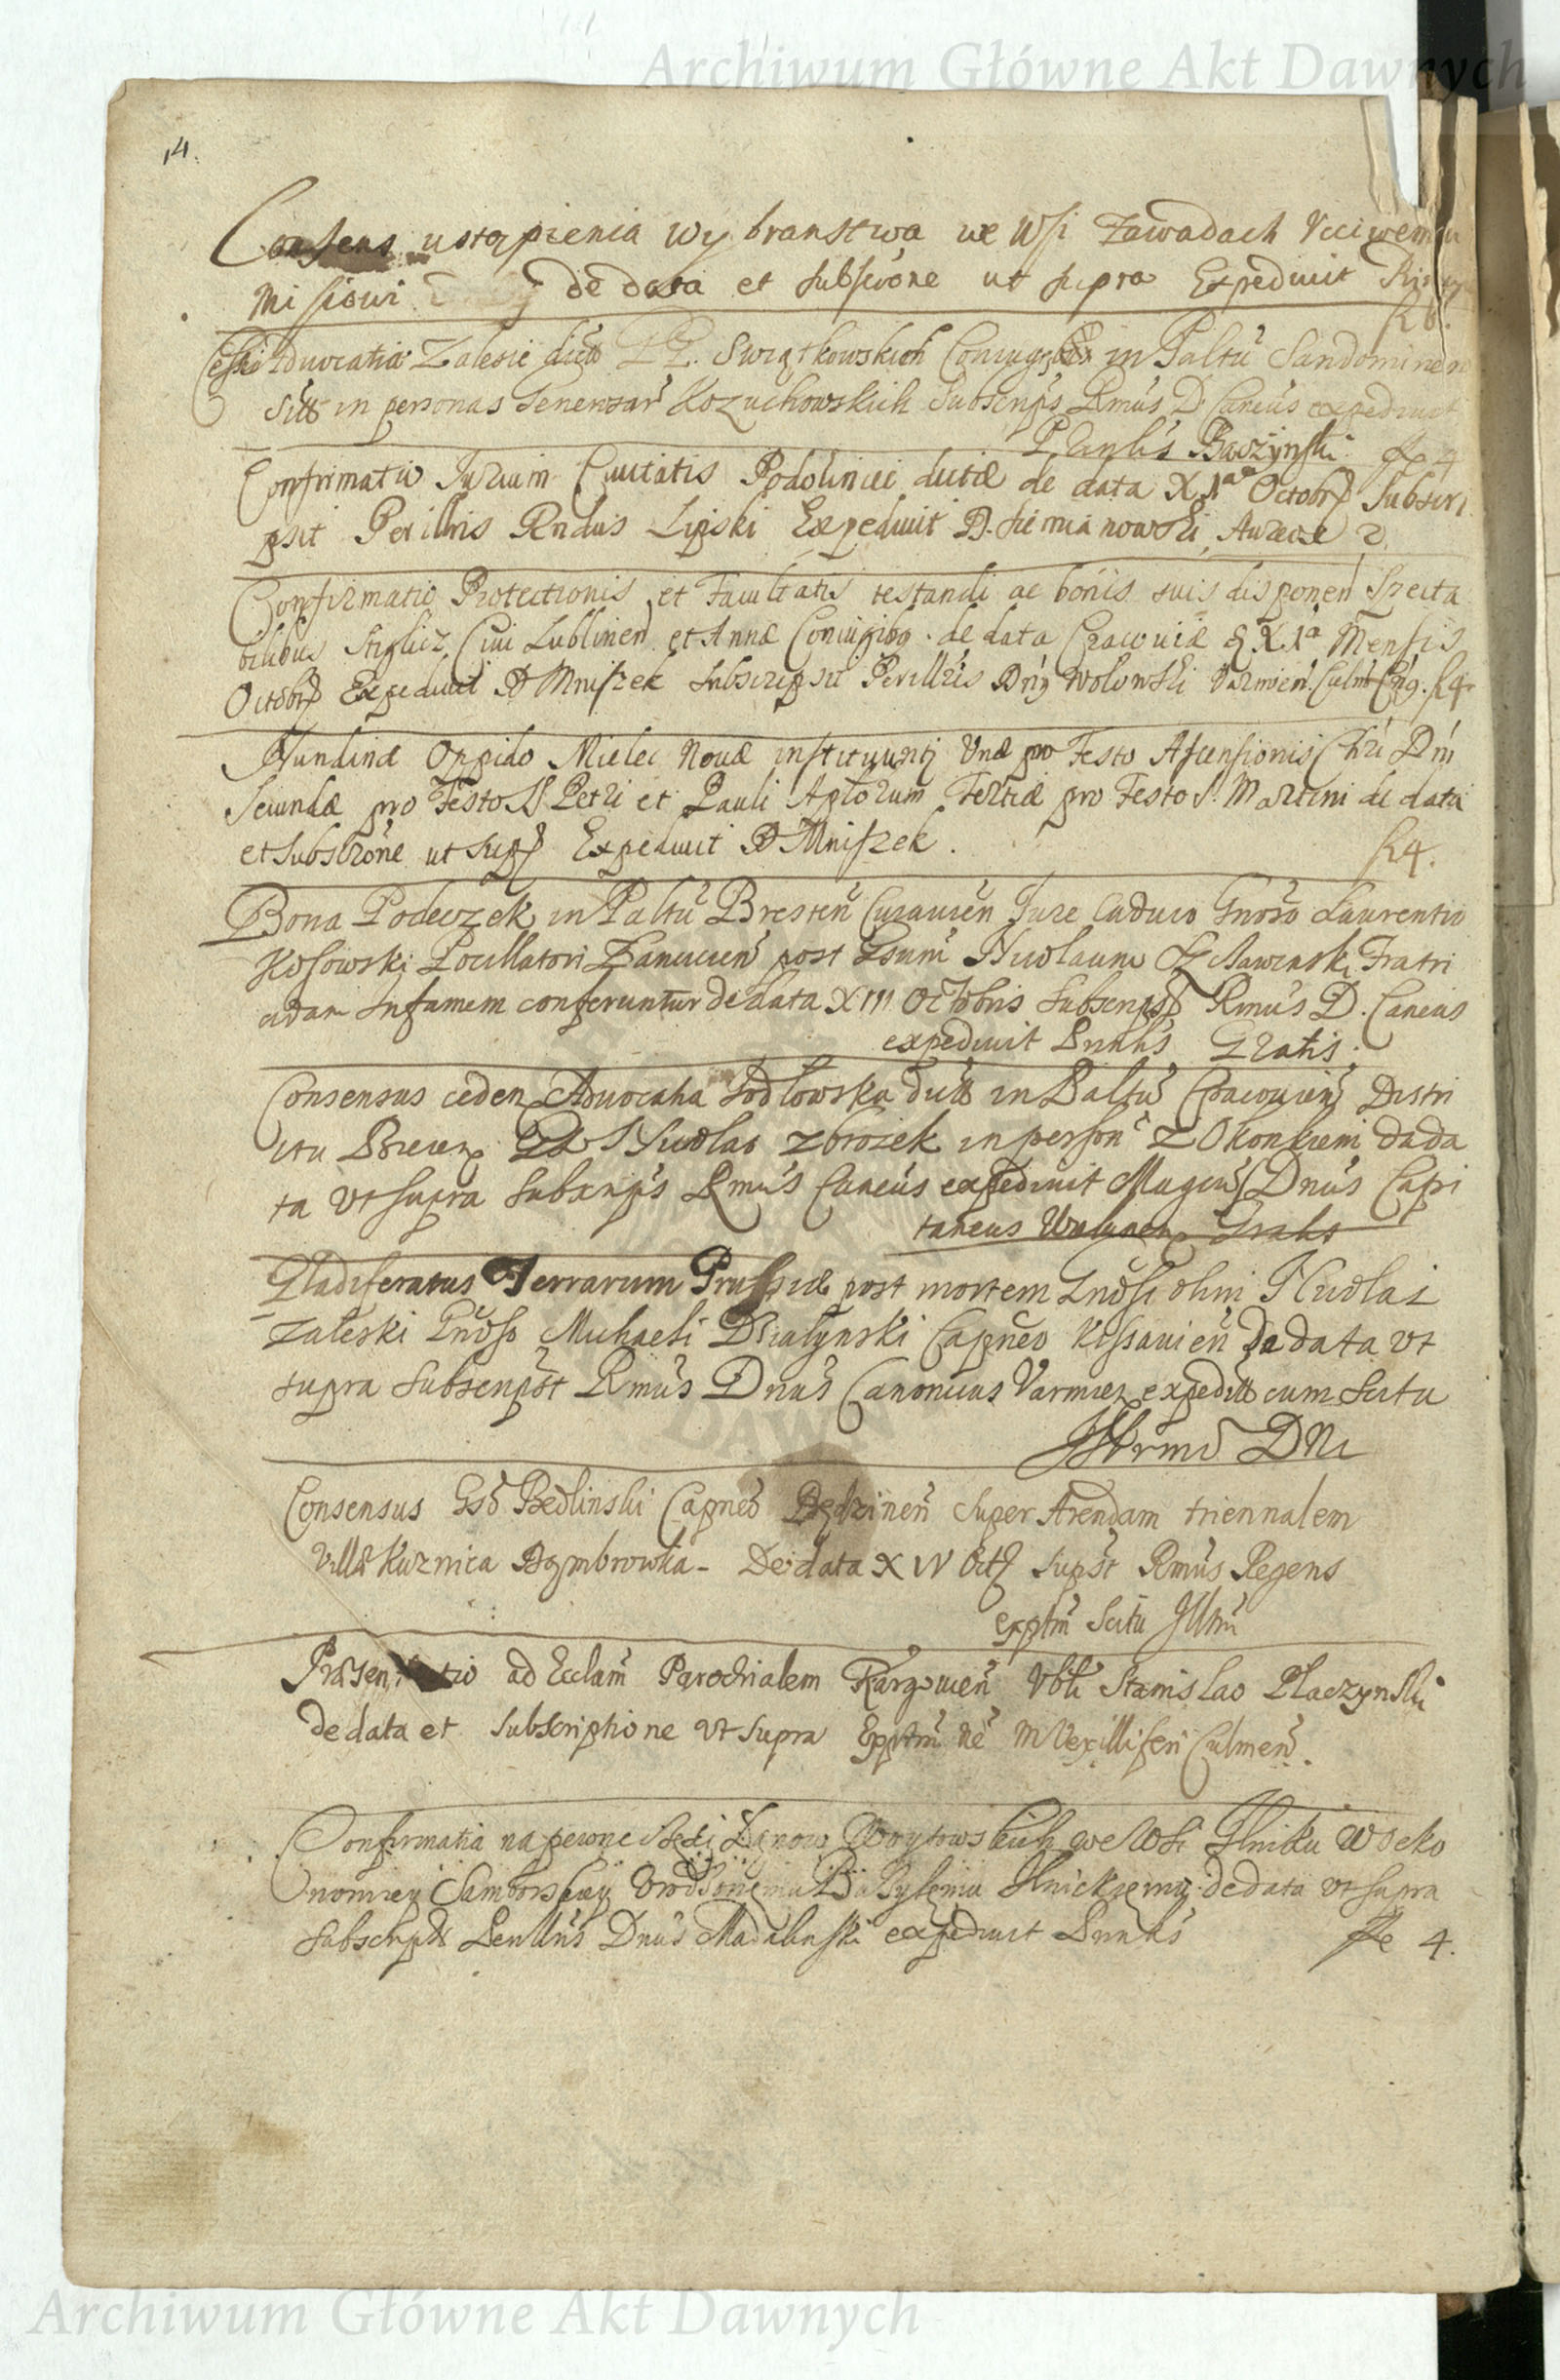 Archiwum Główne Akt Dawnych
14.
Consens ustąpienia wybranstwa we Wsi Zawadach Ucciwemu
Misiowi de data et subscrõne ut supra Expediuit
R 6.
Cessio Aduocatiæ Zalesie dictæ PP. Swiątkowskich Coniugum in Paltũ Sandomirien
sitæ in personas Generosar Kozuchowskich Subscrips Rmũs D Cancũs expediuit
Baszynski. R 4
Confirmatio Jurium Ciuitatis Podolinici dictæ de data X 1ª Octobr Subscri
psit Perillris Rndus Lipski Expediuit D. Siemianowski, Aureos 2.
Confirmatio Protectionis et Facultatis testandi ac bonis suis disponen Specta
bilibus Stiglicz Ciui Lublinen et Annæ Coniugibg. de data Cracouiæ X 1ª Mensis
Octobr Expediuit D Mniszek Subscripsit Perillris Dñs Wołowski Varmien. Culm Cng. R4
Nundinæ Oppido Mielec Nouæ instituunt Unæ pro Festo Ascensionis Chri Dni
Secundæ pro Festo SS. Petri et Pauli Aplorum Tertiæ pro Festo S. Martini de data
et Subscrõne ut supr Expediuit D Mniszek.
R4.
Bona Podewzek in Paltũ Bresteñ Cuiauieñ Jure Caduco Gnõso Laurentio
Kosowski Pocillatori post Gsum Nicolaum Sczawinski Fratri
cidam Infamem conferuntur de data XIII Octobris Subscrips Rmũs D. Cancus
expediuit Gratis.
Consensus ceden Aduocatia Jodłowska dicta in Paltũ Cracouieñ Distri
ctu Biecen Gs Nicolao Zbrozek in person Z Okonkiemi de da
ta ut supra subscrips Rmũs Cancũs expediuit Magcũs Dnũs Capi
taneus Gratis
Gladiferatus Terrarum Prussiæ post mortem Gnõsi olim Nicolai
Zaleski Gnõso Michaeli Działynski Capneo Kissauieñ de data ut
supra Subscripst Rmũs Dnũs Canonicus Varmien expedit cum scitu
Illrmi DNi
Consensus Gsõ Bedlinski Capneo Będzineñ super Arendam triennalem
Villæ Kuznica Dąmbrowka - De data XIV Oct supst Rmũs Regens
exptm scitu Illmi
Præsentatio ad Ecclam Parochialem Kargouieñ Vbli Stanislao Płaczynski
de data et subscriptione ut supra M Vexilliferi Culmeñ.
Confirmatia na pewne Łanow Woytowskich we Wsi Ilniku w Oeko
nomiey Samborskiey Vrodzonemu Basylemu Ilnickiemu de data ut supra
subscrips Perillris Dnũs Madalinski expediuit
R 4.
Archiwum Główne Akt Dawnych